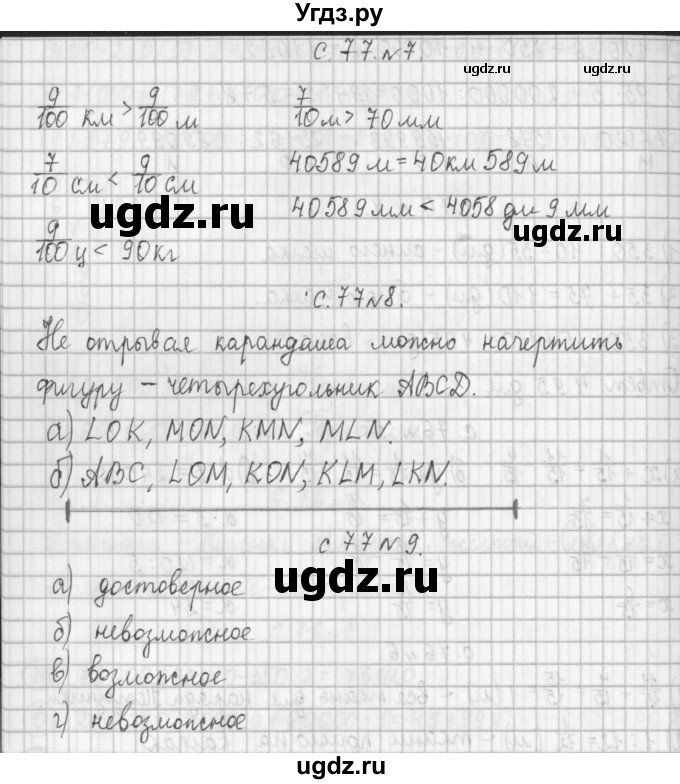 Угдз.ру
с. 77. №7.
ugdz.ru ugdz.ru
9/100 км > 9/100 м
7/10 м > 70 мм
7/10 см < 9/10 см
40589 м = 40 км 589 м
ugdz.ru
40589 мм < 4058 дм 9 мм
ugdz.ru
9/100 ц < 90 кг
с. 77 №8.
Не отрывая карандаша можно начертить
фигуру – четырехугольник ABCD.
а) LOK, MON, KMN, MLN.
б) ABC, LOM, KON, KLM, LKN.
с 77 № 9.
ugdz.ru
ugdz.ru
а) достоверное
б) невозможное
в) возможное
г) невозможное
ugdz.ru
ugdz.ru